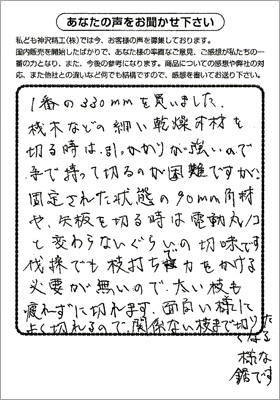 あなたの声をお聞かせ下さい
私ども神沢精工(株)では今、お客様の声を募集しております。
国内販売を開始したばかりで、あなた様の率直なご意見、ご感想が私たちの一
番の力となり、また、今後の参考になります。商品についての感想や弊社の対
応、また他社との違いなど何でも結構ですので、感想を書いてお送り下さい。
1番の330mmを買いました。
杭木などの細い乾燥木材を
切る時は、引っかかりが強いので
手で持って切るのが困難ですが、
固定された状態の90mm角材
や、矢板を切る時は電動丸ノコ
と変わらないぐらいの切味です
伐採でも枝打ちで力をかける
必要が無いので、太い枝も
疲れずに切れます。面白い様に
よく切れるので、関係ない枝まで切りた
くなる
様な
鋸です